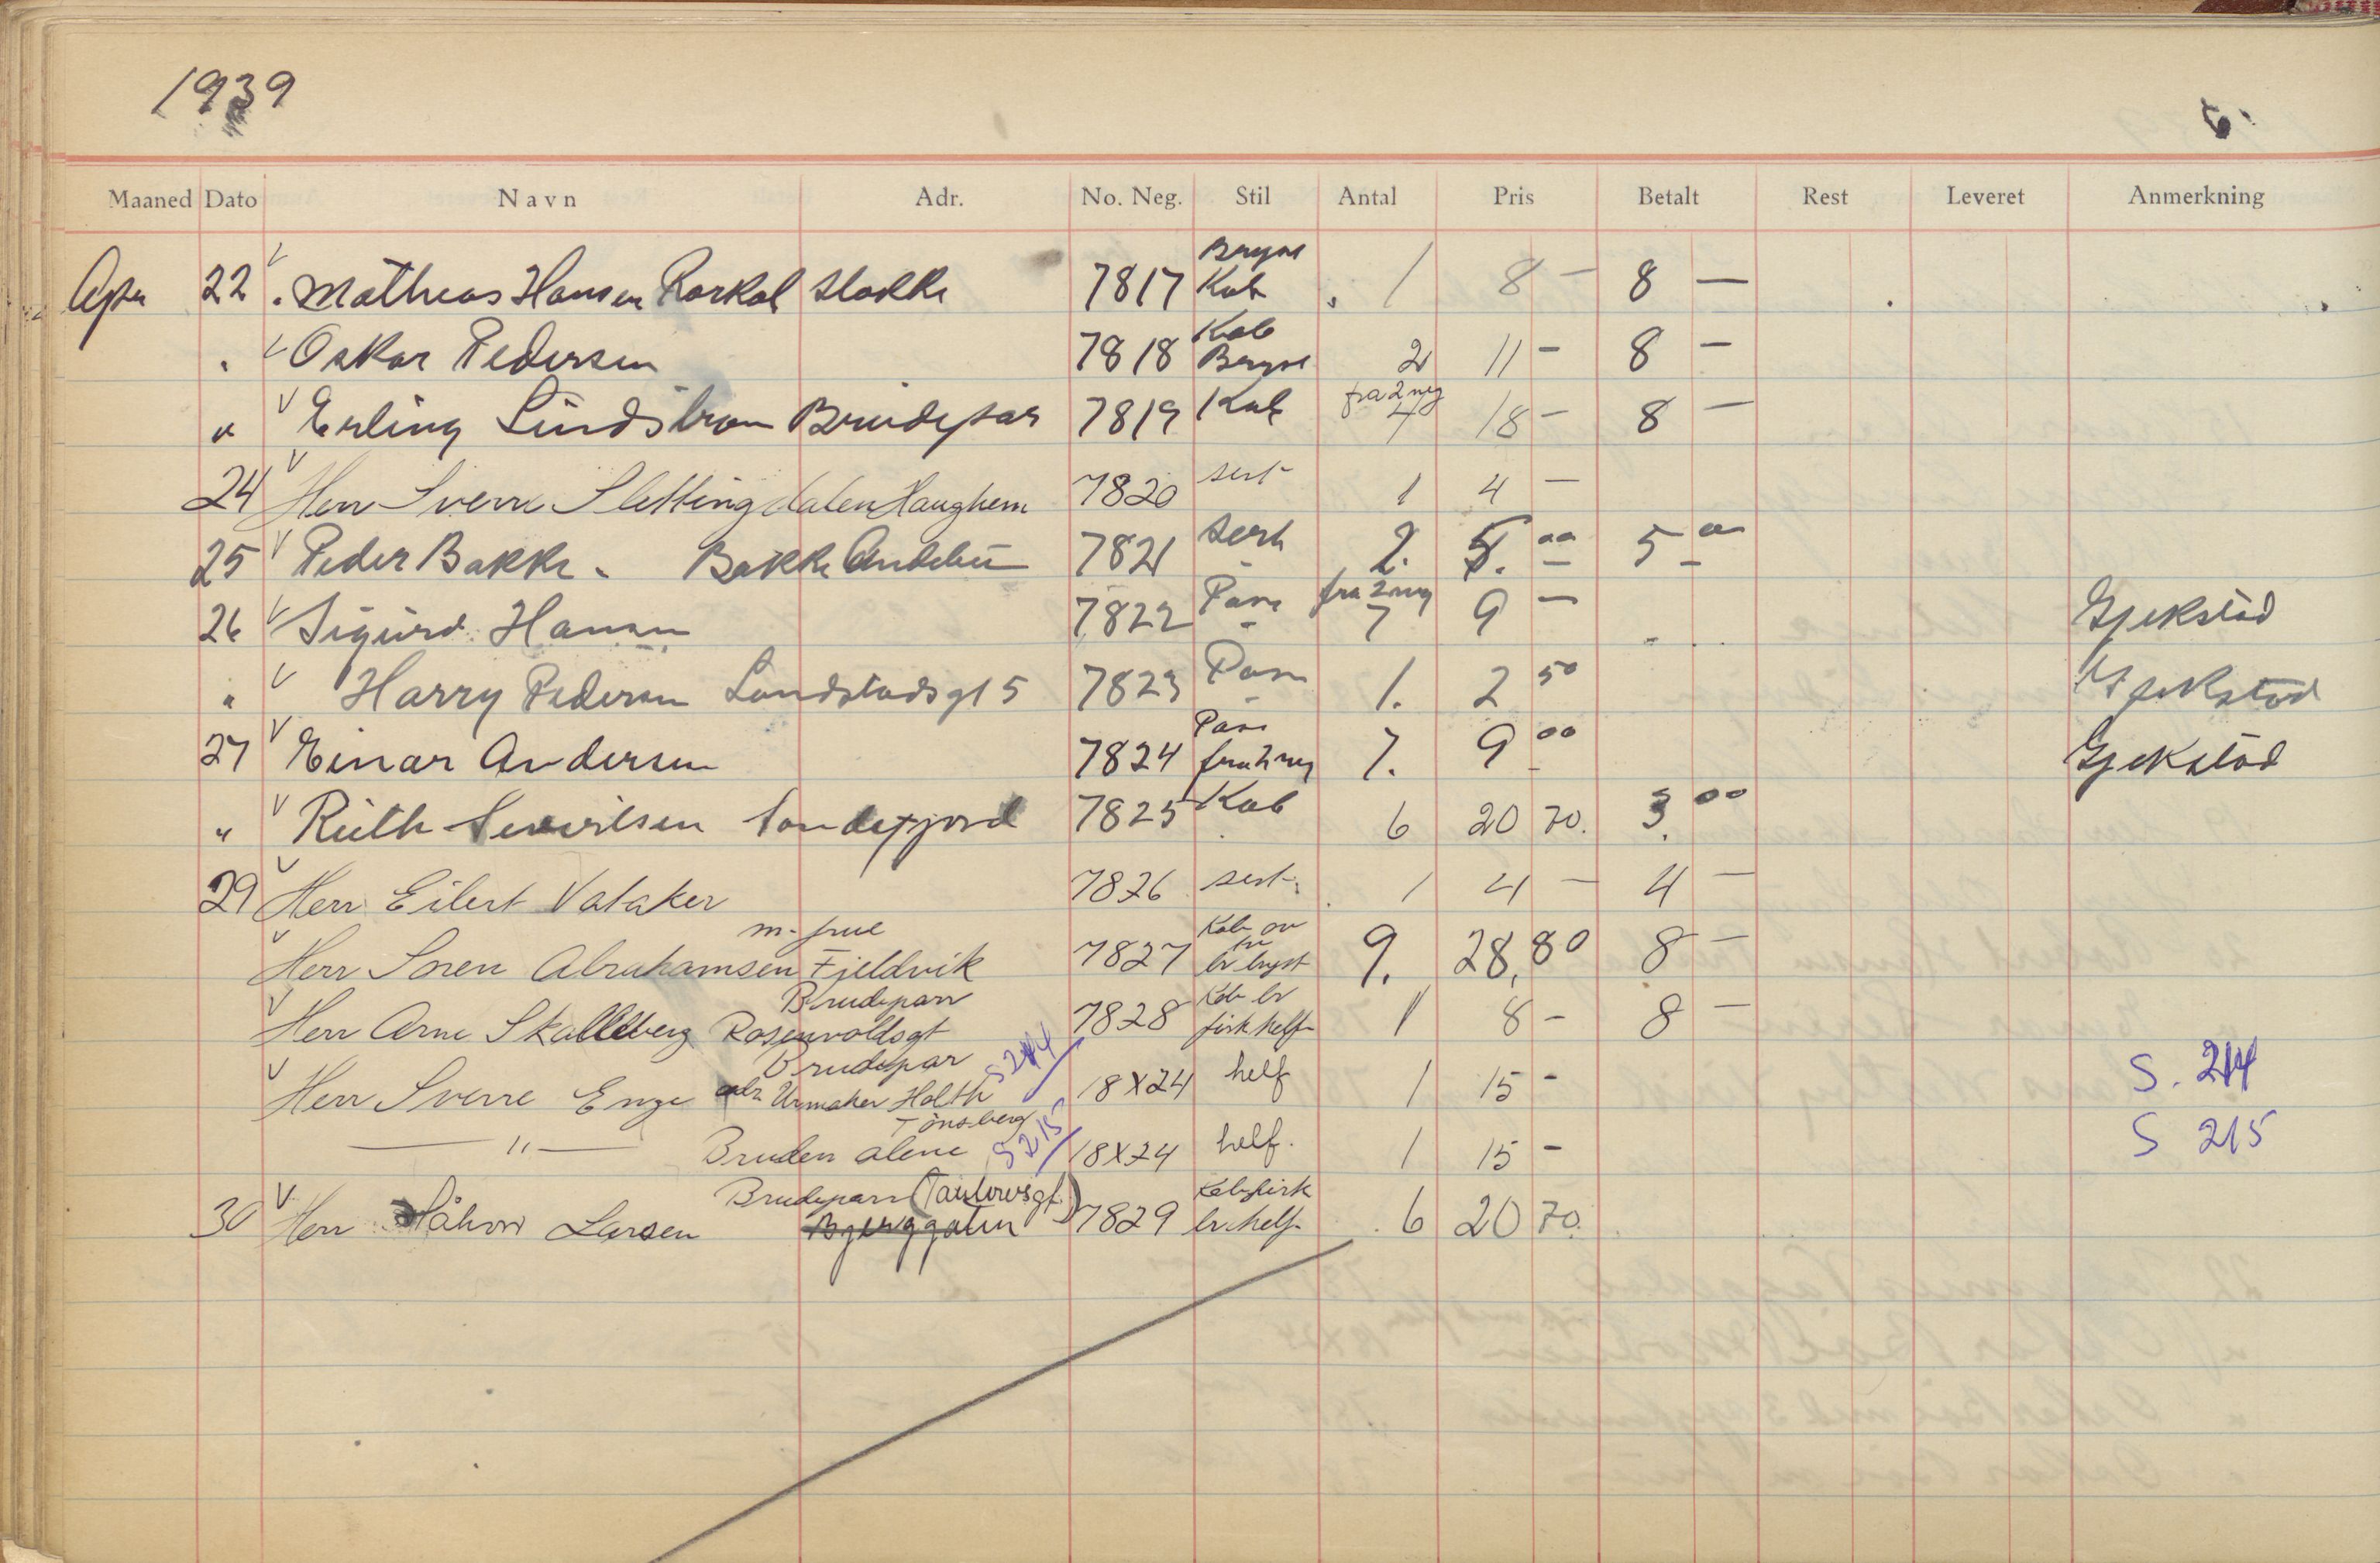 1939
Maaned Dato Navn Adr. No. Neg. Stil Antal Pris Betalt Rest Leveret Anmerkning
22 Mathias Hansen Rorkol Stokke 7817 Bryst Kab 1 8 — 8 —
" Oskar Pedersen 7818 Kab Bryst 2 11 — 8 —
" Erling Lindstrøm Brudepar 7819 Kab fra 2 neg 7 18 — 8 —
24 Herr Sverre Slettingdalen Haughem 7820 sert 1 4 —
25 Peder Bakke. Bakke Andebu 7821 sert 2. 5.00 5 00
26 Sigurd Hansen 7822 Pass fra 2 neg 7 9 — Gjekstad
" Harry Pedersen Landstadsgt 5 7823 Pass 1. 2 50 Gjekstad
27 Einar Andersen 7824 Pass fra 2 neg 7. 9 00 Gjekstad
" Ruth Severilsen Sandefjord 7825 Kab 6 20 70. 3.00
29 Herr Eilert Vataker 7826 sert. 1 4 — 4 —
Herr Soren Abrahamsen m. frue Fjeldvik 7827 Kab br bryst 9. 28,80 8 —
Herr Arne Skalleberg Brudeparr Rosenvoldsgt 7828 Kab br firk helf 1 8 — 8 —
Herr Sverre Enge Brudepar adr. Urmaker Holth Tönsberg S 214 18X24 helf 1 15 — S. 214
— " — Bruden alene S 215 18X24 helf. 1 15 — S 215
30 Herr Håkon Larsen Brudeparr (Taulowsgt.) Bjerggaten 7829 Kab firk br. helf. 6 20 70.